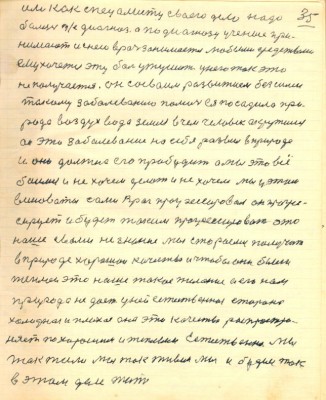 35
или как специалисту своего дело надо
болен на диагноз а по диагнозу учение при
нимает и него врач занимается любыми средствами
ему хочется эту бол утушит у него так это
не получается. он своим развитием бессилен
такому заболеванию помоч Ея посадила при
рода воздух вода земля в чем человек ощутил
ся это заболевание на себя развил в природе
и оно должно его пробудит а мы это всё
баимся и не хочем делат и не хочем мы у этим
виноваты сами Враг прогрессировал он прогрес
сирует и будет таким прогрессироват это
наше с вами не знание мы стараемся получат
в природе хорошая качества и чтобы она была
теплое это наше такое желание а его нам
природа не дает у ней естественная сторона
холодная и плохая она эти качества распростра
няет по хорошим и теплым Естественна мы
так жили мы так живем мы и будем так
в этом деле жит